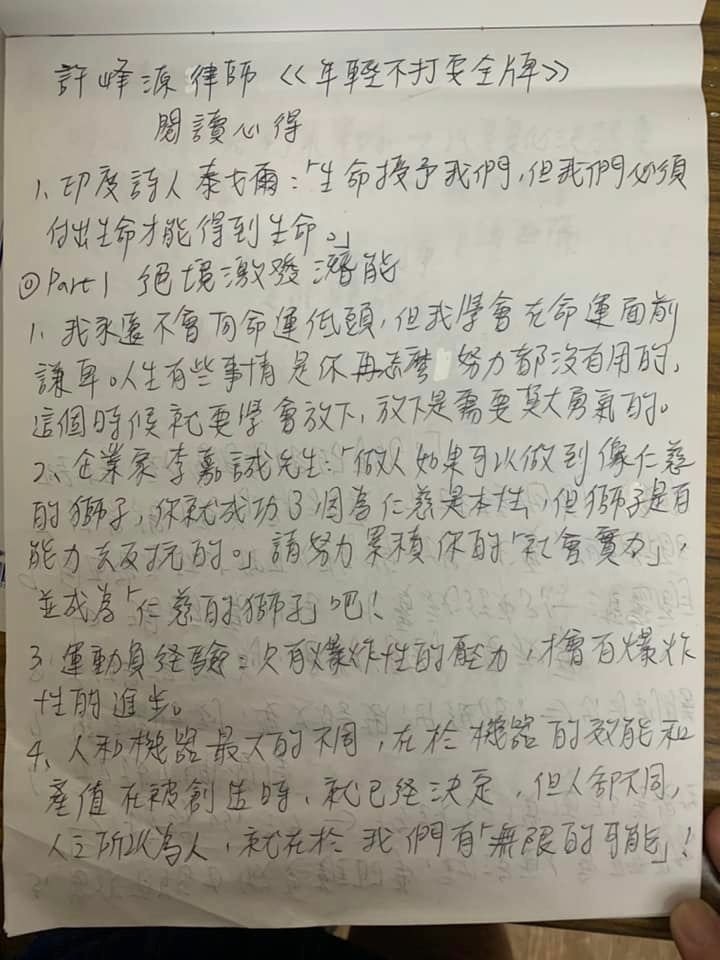 許峰源律師《年輕不打安全牌》
閱讀心得
1、印度詩人泰戈爾:「生命授予我們,但我們必須
付出生命才能得到生命。」
◎Part1 絕境激發潛能
1、我永遠不會向命運低頭,但我學會在命運面前
謙卑。人生有些事情是你再怎麼努力都沒有用的,
這個時候就要學會放下,放下是需要莫大勇氣的。
2、企業家李嘉誠先生:「做人如果可以做到像仁慈
的獅子,你就成功了因為仁慈是本性,但獅子是有
能力去反抗的。」請努力累積你的「社會實力」,
並成為「仁慈的獅子」吧!
3、運動員経驗:只有爆炸性的壓力,才會有爆炸
性的進步。
4、人和機器最大的不同,在於機器的效能和
產值在被創造時,就已経決定,但人卻不同,
人之所以為人,就在於我們有「無限的可能」!